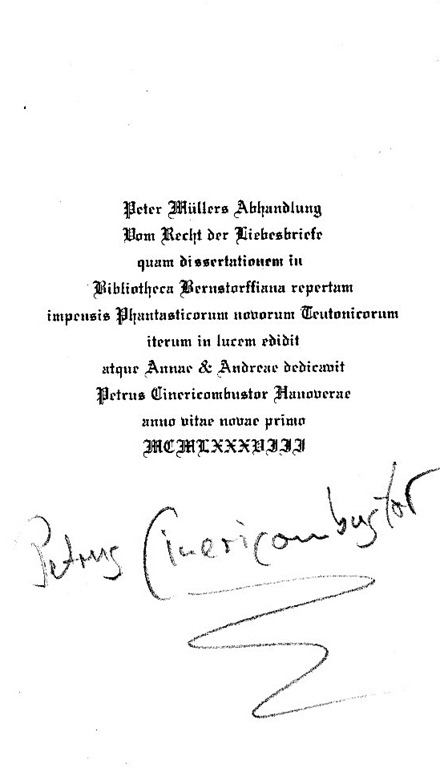 Peter Müllers Abhandlung
Vom Recht der Liebesbriefe
quam dissertationem in
Bibliotheca Bernstorffiana repertam
impensis Phantasticorum novorum Teutonicorum
iterum in lucem edidit
atque Annae & Andreae dedicavit
Petrus Cinericombustor Hanoverae
anno vitae novae primo
MCMLXXXVIII
Petrus Cinericombustor